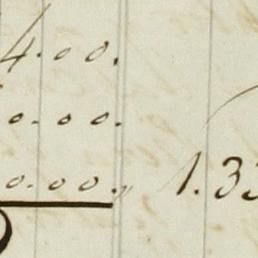 4.00.
0.00.
0.00., 1.33